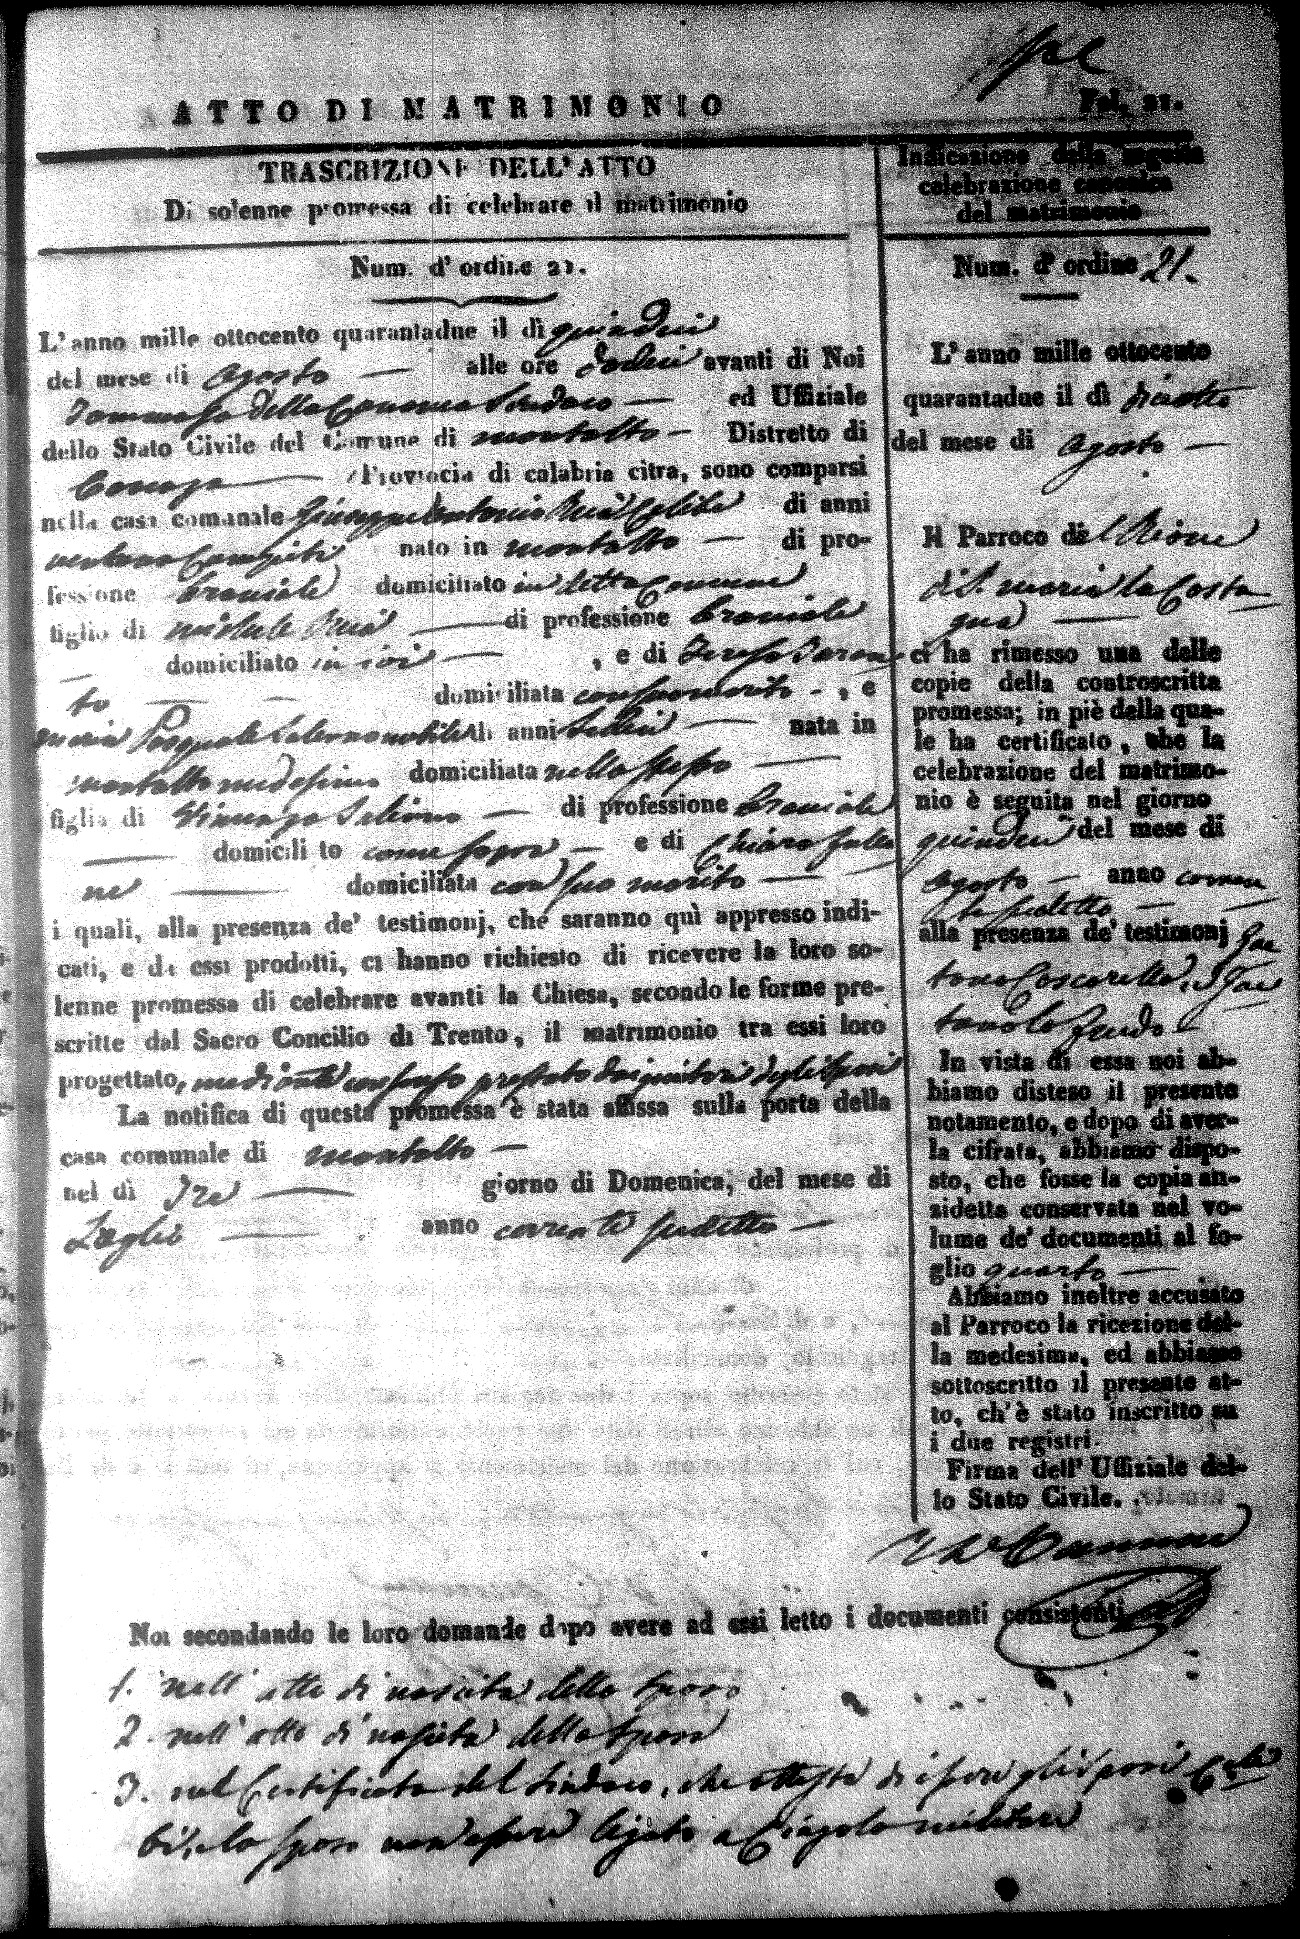 Fol. 21.
ATTO DI MATRIMONIO
TRASCRIZIONE DELL'ATTO
Di solenne promessa di celebrare il matrimonio
Num. d' ordine 21.
L'anno mille ottocento quarantadue il dì quindici
del mese di Agosto — alle ore dodici avanti di Noi
Sindaco — ed Uffiziale
dello Stato Civile del Comune di montalto — Distretto di
Cosenza — Provincia di calabria citra, sono comparsi
nella casa comunale Giuseppe Antonio di anni
nato in montalto — di pro-
fessione Bracciale domiciliato in detto Comune
figlio di — di professione Bracciale
— domiciliato in ivi — , e di Teresa
to — domiciliata con suo marito — , e
maria Pasquale Salerno nubile di anni sedici — nata in
montalto medesimo domiciliata nello stesso —
figlia di Vincenzo Salerno — di professione Bracciale
— domicili to come sopra — e di Chiara
ne — domiciliata con suo marito —
i quali, alla presenza de' testimonj, che saranno quì appresso indi-
cati, e da essi prodotti, ci hanno richiesto di ricevere la loro so-
lenne promessa di celebrare avanti la Chiesa, secondo le forme pre-
scritte dal Sacro Concilio di Trento, il matrimonio tra essi loro
progettato, mediante consenso prestato dai genitori degli sposi
La notifica di questa promessa è stata affissa sulla porta della
casa comunale di montalto —
nel dì Tre — giorno di Domenica, del mese di
Luglio — anno corrente sudetto —
Indicazione della seguita
celebrazione canonica
del matrimonio
Num. d' ordine 21.
L'anno mille ottocento
quarantadue il dì diciotto
del mese di Agosto —
Il Parroco del Rione
di S. maria la Costa
—
ci ha rimesso una delle
copie della controscritta
promessa; in piè della qua-
le ha certificato, che la
celebrazione del matrimo-
nio è seguita nel giorno
quindici del mese di
Agosto — anno corren
te sudetto —
alla presenza de' testimonj Gae
tano Coscarella, e Gae
tano
In vista di essa noi ab-
biamo disteso il presente
notamento, e dopo di aver-
la cifrata, abbiamo dispo-
sto, che fosse la copia an-
zidetta conservata nel vo-
lume de' documenti al fo-
glio quarto —
Abbiamo inoltre accusato
al Parroco la ricezione del-
la medesima, ed abbiamo
sottoscritto il presente at-
to, ch'è stato inscritto su
i due registri.
Firma dell' Uffiziale del-
lo Stato Civile.
Noi secondando le loro domande dopo avere ad essi letto i documenti consistenti
1. nell' atto di nascita dello sposo
2. nell' atto di nascita della sposa
3. nel Certificato del Sindaco, che attesta di essere gli sposi Celi
bi, e lo sposo non essere legato a Cingolo militare